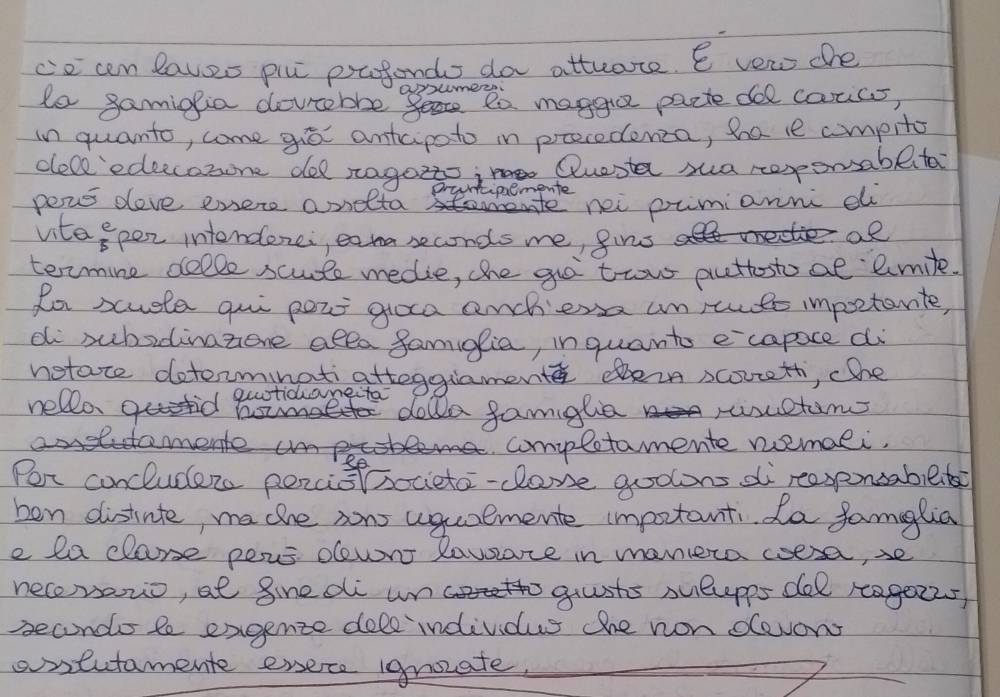 c'è un lavoro più profondo da attuare. È vero che
la famiglia dovrebbe assumersi la maggior parte del carico,
in quanto, come già anticipato in precedenza, ha il compito
dell'educazione del ragazzo; Questa sua responsabilità
però deve essere assolta principalmente nei primi anni di
vita e per intenderci, secondo me, fino al
termine delle scuole medie, che già trovo piuttosto al limite.
La scuola qui però gioca anch'essa un ruolo importante,
di subordinazione alla famiglia, in quanto è capace di
notare determinati atteggiamenti scorretti, che
nella quotidianeità della famiglia risultano
completamente normali.
Per concludere perciò la società-classe godono di responsabilità
ben distinte, ma che sono ugualmente importanti. La famiglia
e la classe però devono lavorare in maniera coesa, se
necessario, al fine di un giusto sviluppo del ragazzo,
secondo le esigenze dell'individuo che non devono
assolutamente essere ignorate.